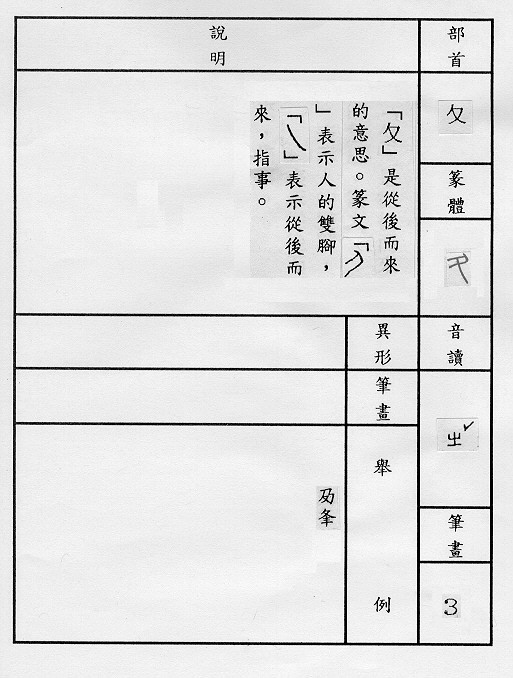 部首
夂
篆體
音讀
ㄓˇ
筆畫
3
說明
「夂」是從後而來
的意思。篆文「
」表示人的雙腳，
「乀」表示從後而
來，指事。
異形
筆畫
舉例
夃夆